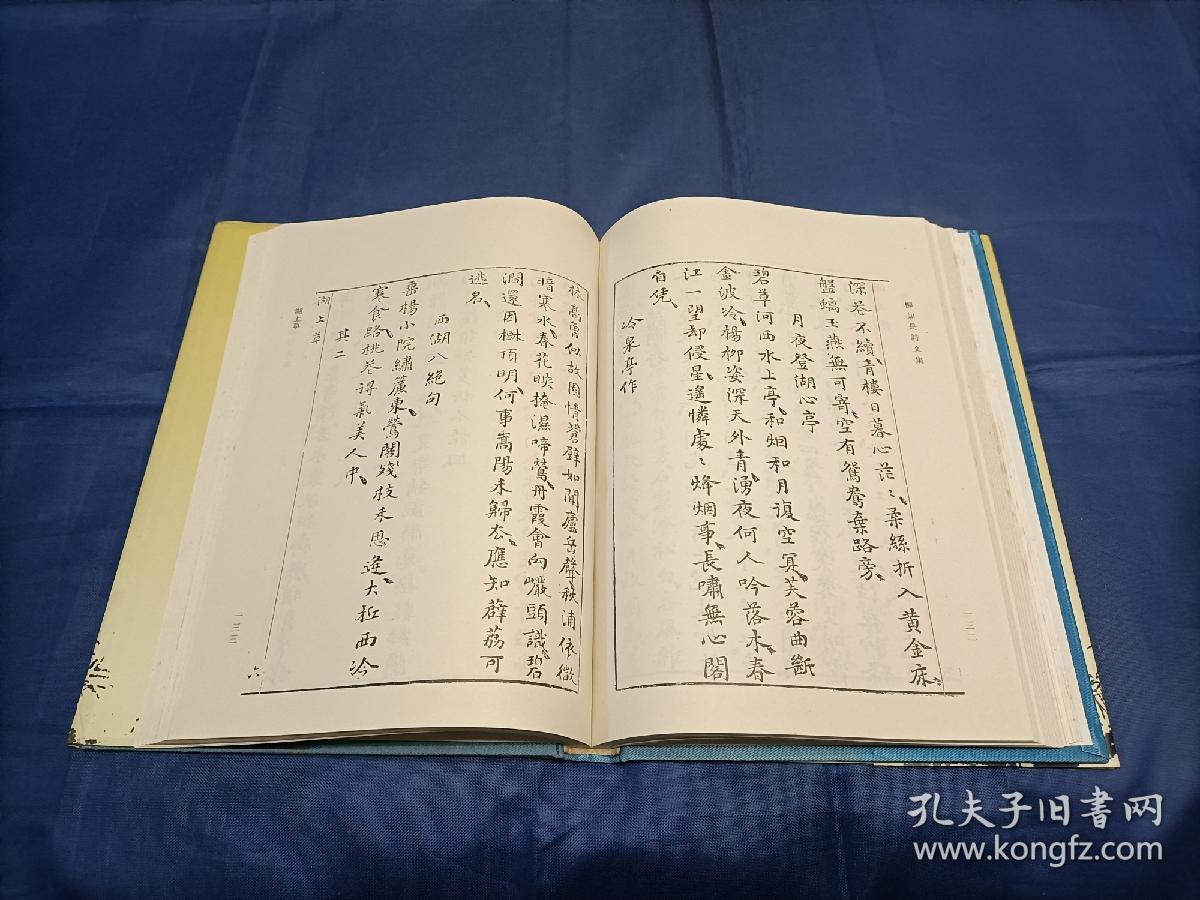 柳如是詩文集
深巷不續青樓日暮心茫〻柔絲折入黄金床
盤螭玉燕無可寄空有鴛鴦棄路旁
月夜登湖心亭
碧草河西水上亭和烟和月復空冥芙蓉曲斷
金波冷楊柳姿深天外青湧夜何人吟落木春
江一望却侵星遙憐處〻烽烟事長嘯無心閣
自凭
冷泉亭作
一三二
故園情
譬如聞廬岳聲秋浦依微
暗寒水春花映掩濕啼鶯丹霞會向巖頭識碧
澗還因樹頂明何事嵩陽未歸去應知薜荔可
逃名
西湖八絕句
垂楊小院繡簾東鶯閣殘枝未思逢大抵西泠
寒食路桃花得氣美人中
其二
湖上草
六
湖上草
一三三
孔夫子旧书网
www.kongfz.com